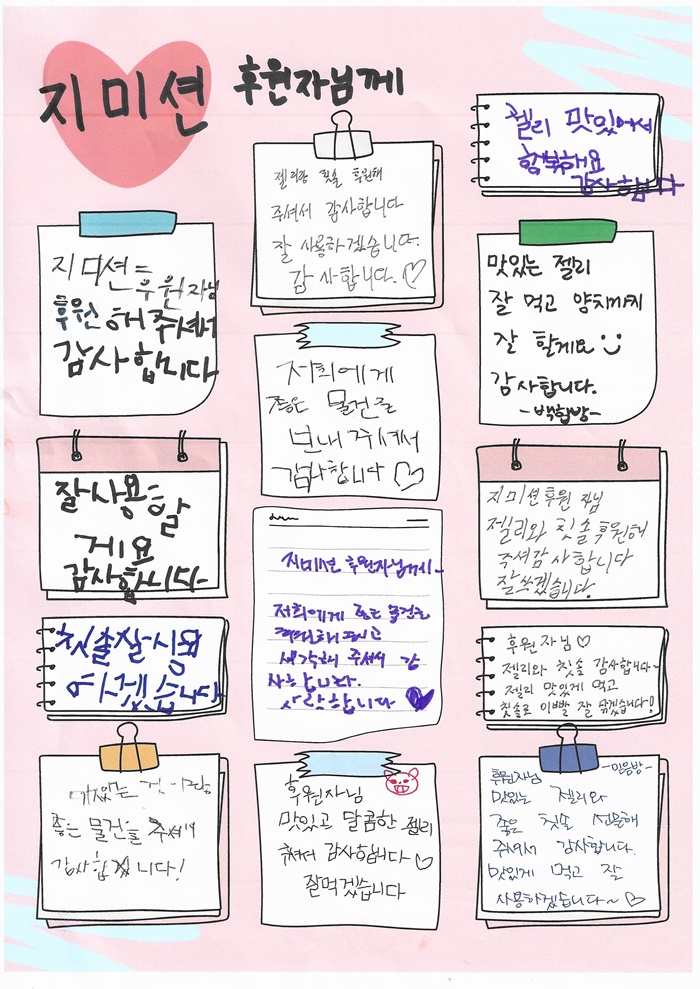 지미션 후원자님께
지미션 후원자님
후원해주셔서
감사합니다
잘사용할
게요
감사합니다
칫솔잘사용
하겠습니다
좋은 물건을 주셔서
감사합니다!
젤리랑 칫솔 후원해
주셔서 감사합니다
잘 사용하겠습니다.
감사합니다. ♡
저희에게
좋은 물건을
보내주셔서
감사합니다 ♡
지미션 후원자님께~
저희에게 좋은 물건을
생각해 주셔서 감
사합니다.
사랑합니다 ♥
후원자님
맛있고 달콤한 젤리
주셔서 감사합니다 ♡
잘먹겠습니다
젤리 맛있어서
행복해요
감사합니다
맛있는 젤리
잘 먹고 양치까지
잘 할게요
감사합니다.
-백합방-
지미션후원자님
젤리와 칫솔후원해
주셔감사합니다
잘쓰겠습니다.
후원자님♡
젤리와 칫솔 감사합니다~
젤리 맛있게 먹고
칫솔로 이빨 잘 닦겠습니다!
-믿음방-
후원자님
맛있는 젤리와
좋은 칫솔 선물해
주셔서 감사합니다.
맛있게 먹고 잘
사용하겠습니다~♡